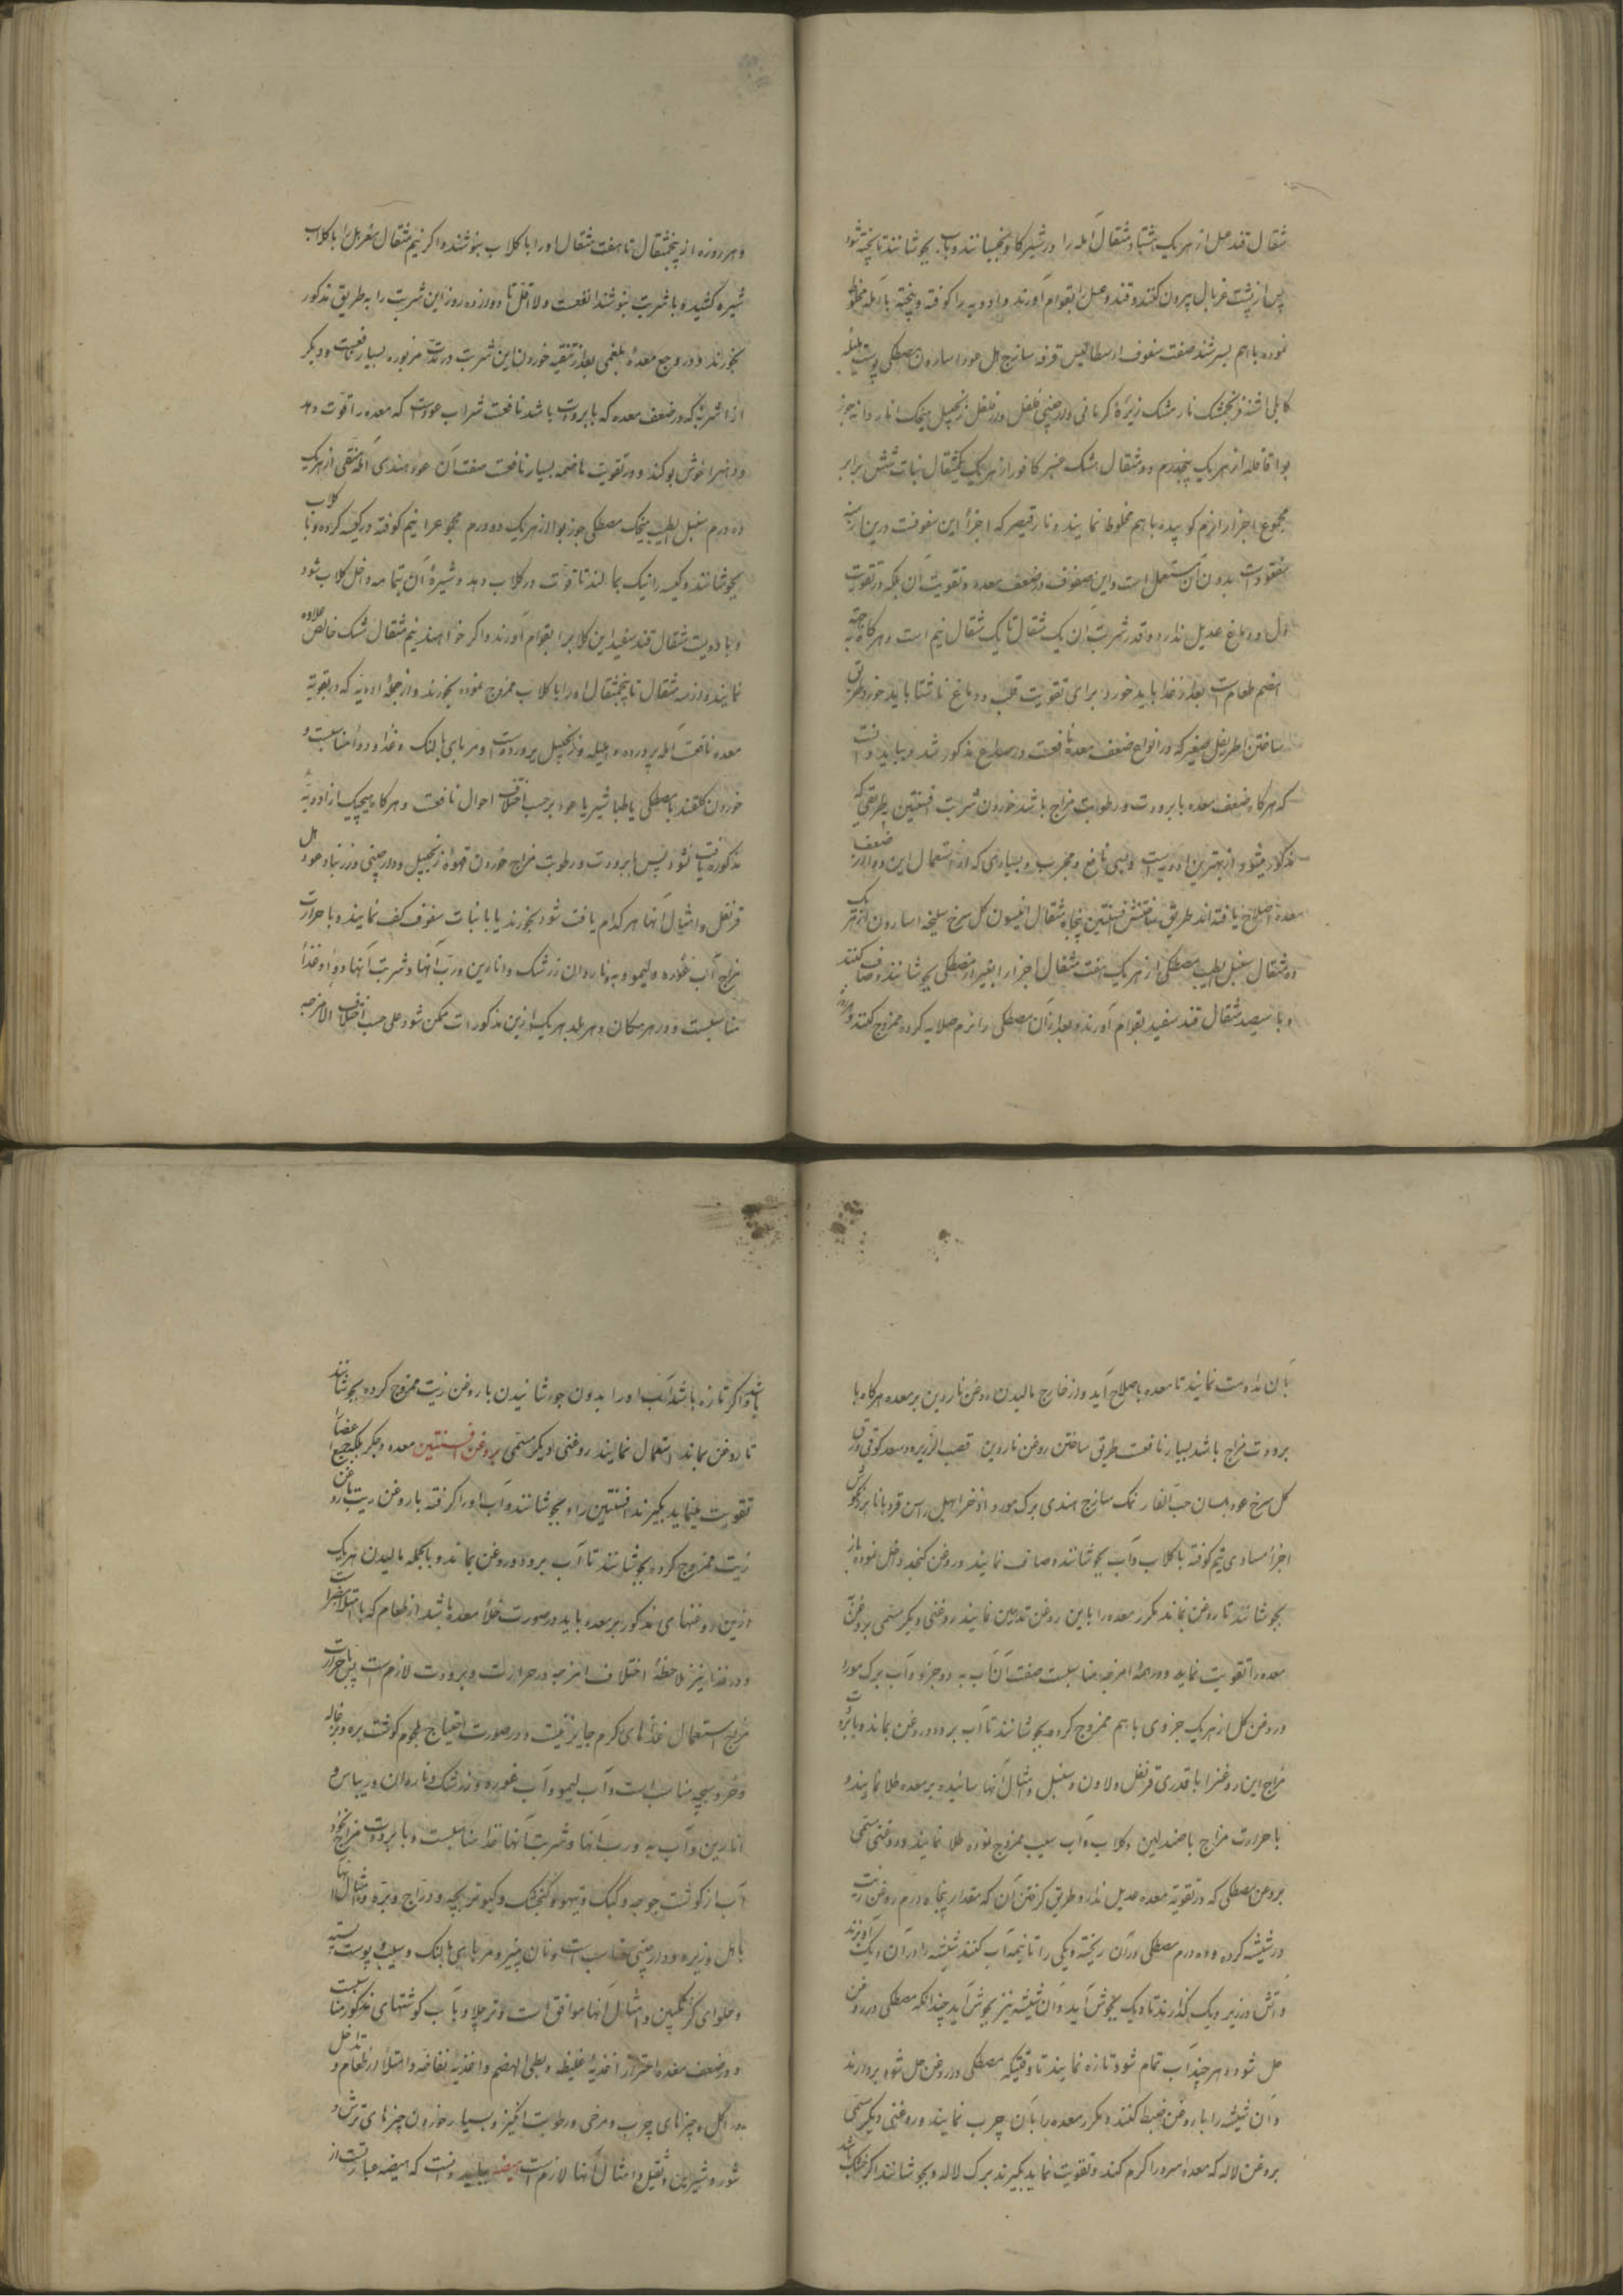 مثقال قند عسل از هر یک هشتاد مثقال آمله را در شیر گاو بخیسانند و بآب بجوشانند تا پخته شود
پس از پشت غربال بیرون کنند و قند و عسل بقوام آورند و ادویه را کوفته و پخته بآمله مخلوط
نموده باهم بسرشند صفت سفوف ارسطاطالیس قرفه سازج هل عود اسارون مصطکی پوست هلیله
کابلی اشنه فرنجمشک نارمشک زیره کرمانی دارچینی فلفل دارفلفل زنجبیل میخک اناردانه جوز
بوا قاقله از هر یک پنجدرم دو مثقال مشک عنبر کافور از هر یک یکمثقال نبات شش برابر
مجموع اجزا را نرم کوبیده باهم مخلوط نمایند و نارقیصر که اجزاء این سفوفست درین ازمنه
مفقود است بدون آن مستعمل است و این سفوف در ضعف معده و تقویت آن بلکه در تقویت
دل و دماغ عدیل ندارد و قدر شربت آن یک مثقال تا یک مثقال نیم است و هرگاه بجهة
هضم طعام است بعد از غذا باید خورد برای تقویت قلب و دماغ ناشتا باید خورد طریق
ساختن اطریفل صغیر که در انواع ضعف معده نافعست در صداع مذکور شد و بباید دانست
که هرگاه ضعف معده با برودت و رطوبت مزاج باشد خوردن شربت افسنتین بطریقی که
مذکور میشود از بهترین ادویه است و بسی نافع و مجرب و بسیاری که از استعمال این دوا از ضعف
معده اصلاح یافته اند طریق ساختنش افسنتین پنجاه مثقال انیسون کل سرخ سلیخه اسارون از هر یک
ده مثقال سنبل الطیب مصطکی از هر یک هفت مثقال اجزا را بغیر از مصطکی بجوشانند و صاف کنند
و با سیصد مثقال قند سفید بقوام آورند و بعد از آن مصطکی را نرم صلایه کرده ممزوج کنند
و هر روزه از پنجمثقال تا هفت مثقال او را با کلاب بنوشند و اگر نیم مثقال را با کلاب
شیره کشیده با شربت بنوشند انفعست و لااقل تا دوازده روز این شربت را به طریق مذکور
بخورند و در وجع معدهٔ بلغمی بعد از تنقیه خوردن این شربت در مدت مزبوره بسیار نافعست و دیگر
از اشربهٔ که در ضعف معده که با برودت باشد نافعست شراب عود است که معده را قوت دهد
و دهنرا خوش بو کند و در تقویت هاضمه بسیار نافعست صفت آن عود هندی آملهٔ منقی از هر یک
ده درم سنبل الطیب میخک مصطکی جوز بوا از هر یک دو درم مجموعرا نیم کوفته در کیسه کرده و با کلاب
بجوشانند و کیسه را نیک بمالند تا قوت در کلاب دهد و شیرهٔ آن بتمامه داخل کلاب شود
و با دویست مثقال قند سفید این کلابرا بقوام آورند و اگر خواهند نیم مثقال مشک خالص علاوه
نمایند و از سه مثقال تا پنجمثقال او را با کلاب ممزوج نموده بخورند و از جملهٔ ادویه که در تقویة
معده نافعست آمله پرورده و هلیله و زنجبیل پرورده است و مربای بالنک و غذا و دوا مناسبست و
خوردن کلقند با مصطکی یا طباشیر یا عود بر حسب اختلاف احوال نافعست و هرگاه هیچیک از ادویهٔ
مذکوره یافت نشود پس با برودت و رطوبت مزاج خوردن قهوهٔ زنجبیل و دارچینی و زرنباد و عود هل
قرنفل و امثال آنها هر کدام یافت شود بخورند یا با نبات سفوف کف نمایند و با حرارت
مزاج آب غوره و لیمو و به و ناردان زرشک و انارین و رب آنها و شربت آنها دواء و غذاء
مناسبست و در هر مکان و هر بلد هر یک از این مذکورات ممکن شود علی حسب اختلاف الامزجه
بآن مداومت نمایند تا معده باصلاح آید و از خارج مالیدن روغن ناردین بر معده هرگاه با
برودت مزاج باشد بسیار نافعست طریق ساختن روغن ناردین قصب الزریره سعد کوفی ورق
کل سرخ عود بلسان حب الغار نمک سازج هندی برک مورد اذخر ابهل راسن قردمانا
اجزاء مساوی نیم کوفته با کلاب و آب بجوشانند و صاف نمایند و روغن کنجد داخل نموده باز
بجوشانند تا روغن بماند مکرر معده را باین روغن تدهین نمایند روغنی دیگر مسمی بروغن
معده را تقویت نماید و در همهٔ امزجه مناسبست صفت آن آب به دو جزو و آب برک مورد
و روغن کل از هر یک جزوی باهم ممزوج کرده بجوشانند تا آب برود و روغن بماند و با برودت
مزاج این روغنرا با قدری قرنفل و لادن و سنبل و امثال آنها سائیده بر معده طلا نمایند و
با حرارت مزاج با صندلین و کلاب و آب سیب ممزوج نموده طلا نمایند و روغنی مسمی
بروغن مصطکی که در تقویة معده عدیل ندارد و طریق گرفتن آن که مقدار پنجاه درم روغن زیت
در شیشه کرده و ده درم مصطکی در آن ریخته و دیکی را تا نیمه آب کنند شیشه را در آن دیک آویزند
و آتش در زیر دیک کنند تا دیک بجوش آید و آن شیشه نیز بجوش آید چندانکه مصطکی در روغن
حل شود و هر چند آب تمام شود تازه نمایند تا وقتیکه مصطکی در روغن حل شود بردارند
و آن شیشه را با روغن ضبط کنند و مکرر معده را بآن چرب نمایند و روغنی دیگر مسمی
بروغن لاله که معدهٔ سرد را کرم کند و تقویت نماید بکیرند برک لاله و بجوشانند اگر خشک باشد
و اگر تازه باشد آب او را بدون جوشانیدن با روغن زیت ممزوج کرده بجوشانند
تا روغن بماند استعمال نمایند روغنی دیگر مسمی بروغن افسنتین معده و جکر بلکه جمیع اعضا را
تقویت مینماید بکیرند افسنتین را و بجوشانند و آب او را گرفته با روغن زیت یا روغن
زیت ممزوج کرده بجوشانند تا آب برود و روغن بماند و بالجمله مالیدن هر یک
ازین روغنهای مذکور بر معده باید در صورت خلاء معده باشد از طعام که با امتلا مضر است
و در غذا نیز ملاحظهٔ اختلاف امزجه در حرارت و برودت لازم است پس با حرارت
مزاج استعمال غذاهای کرم جایز نیست و در صورت احتیاج بلحوم گوشت بره و بزغاله
و خروسبچه مناسب است و آب لیمو و آب غوره و زرشک و ناردان و ریباس و
انارین و آب به و رب آنها و شربت آنها غذا مناسبست و با برودت مزاج نخود
آب از گوشت جوجه و کبک و تیهو و گنجشک و کبوتر بچه و دراج و بره و امثال آنها
با هل و زیره و دارچینی مناسب است و نان پنیر و مربای بالنک و سیب و پوست پسته
و حلوای گزنکبین و امثال آنها موافق است و تر چلاو با آب گوشتهای مذکور مناسبست
و در ضعف معده احتراز از اغذیهٔ غلیظه و بطی الهضم و اغذیهٔ نفاخه و امتلاء از طعام و تداخل
در اکل و چیزهای چرب و مرخی و رطوبت انگیز و بسیار خوردن چیزهای ترش و
شور و شیرین و ثقیل و امثال آنها لازم است هیضه بباید دانست که هیضه عبارتست از